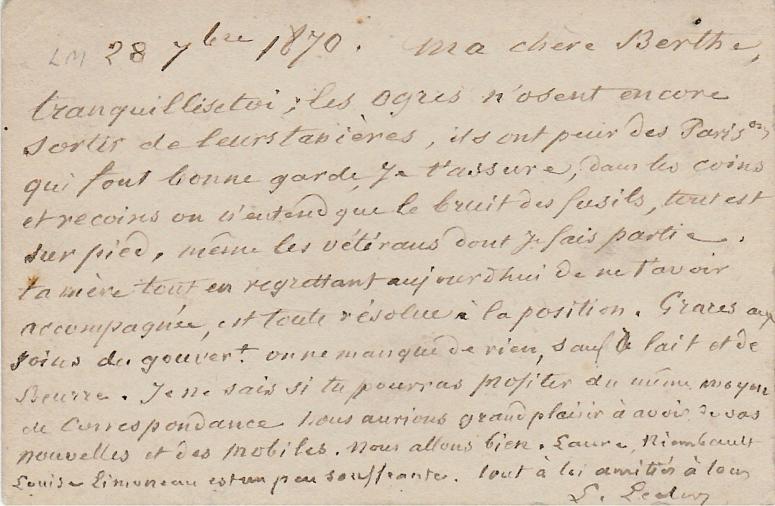 LM 28 7bre 1870. Ma chère Berthe,
tranquillise toi ; les Ogres n'osent encore
sortir de leurs tanières, ils ont peur des Parisons
qui font bonne garde, je t'assure, dans les coins
et recoins on n'entend que le bruit des fusils, tout est
sur pied, même les vétérans dont je fais partie.
ta mère tout en regrettant aujourd'hui de ne t'avoir
accompagnée, est toute résolue à la position. Graces aux
soins du gouvert. on ne manque de rien, sauf le lait et de
Beurre. Je ne sais si tu pourras profiter du même moyen
de Correspondance nous aurions grand plaisir à avoir de vos
nouvelles et des Mobiles. Nous allons bien. Laure, Riembault
Louise Limoneau est un peu souffrante. tout à toi amitiés à tous
L.